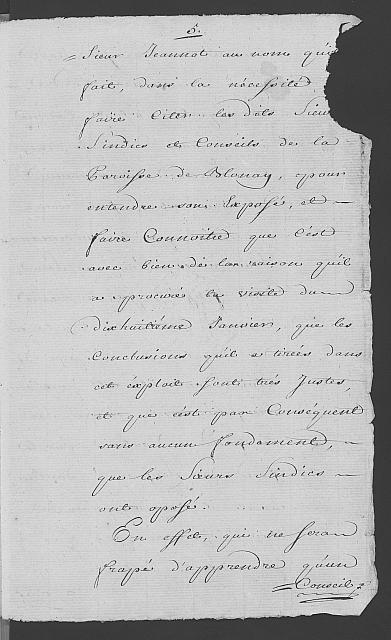 5.
= Sieur Jeannot au nom qu'il
fait, dans la nécéssité
faire Citer les dits Sieurs
Sindics et Conseils de la
Paroisse de Blonay, pour
entendre son Exposé, et —
faire Connoitre que c'est
avec bien de la raison qu'il
a procuré la visite du
dixhuitiéme Janvier, que les
Conclusions qu'il a tirées dans
cet éxploit sont trés Justes,
et que c'est par Conséquent
sans aucun fondement, —
que les Sieurs Sindics —
ont oposé.
En effet, qui ne sera
frapé d'apprendre qu'un
= Conseil,